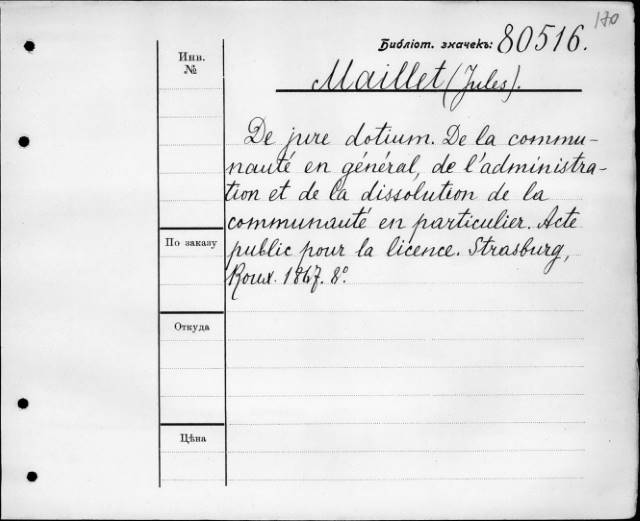 170
Библіот. значекъ: 80516.
Инв.
№
Maillet (Jules).
De jure dotium. De la commu-
nauté en général, de l'administra-
tion et de la dissolution de la
communauté en particulier. Acte
По заказу
public pour la licence. Strasburg,
Roux. 1867. 8º.
Откуда
Цѣна